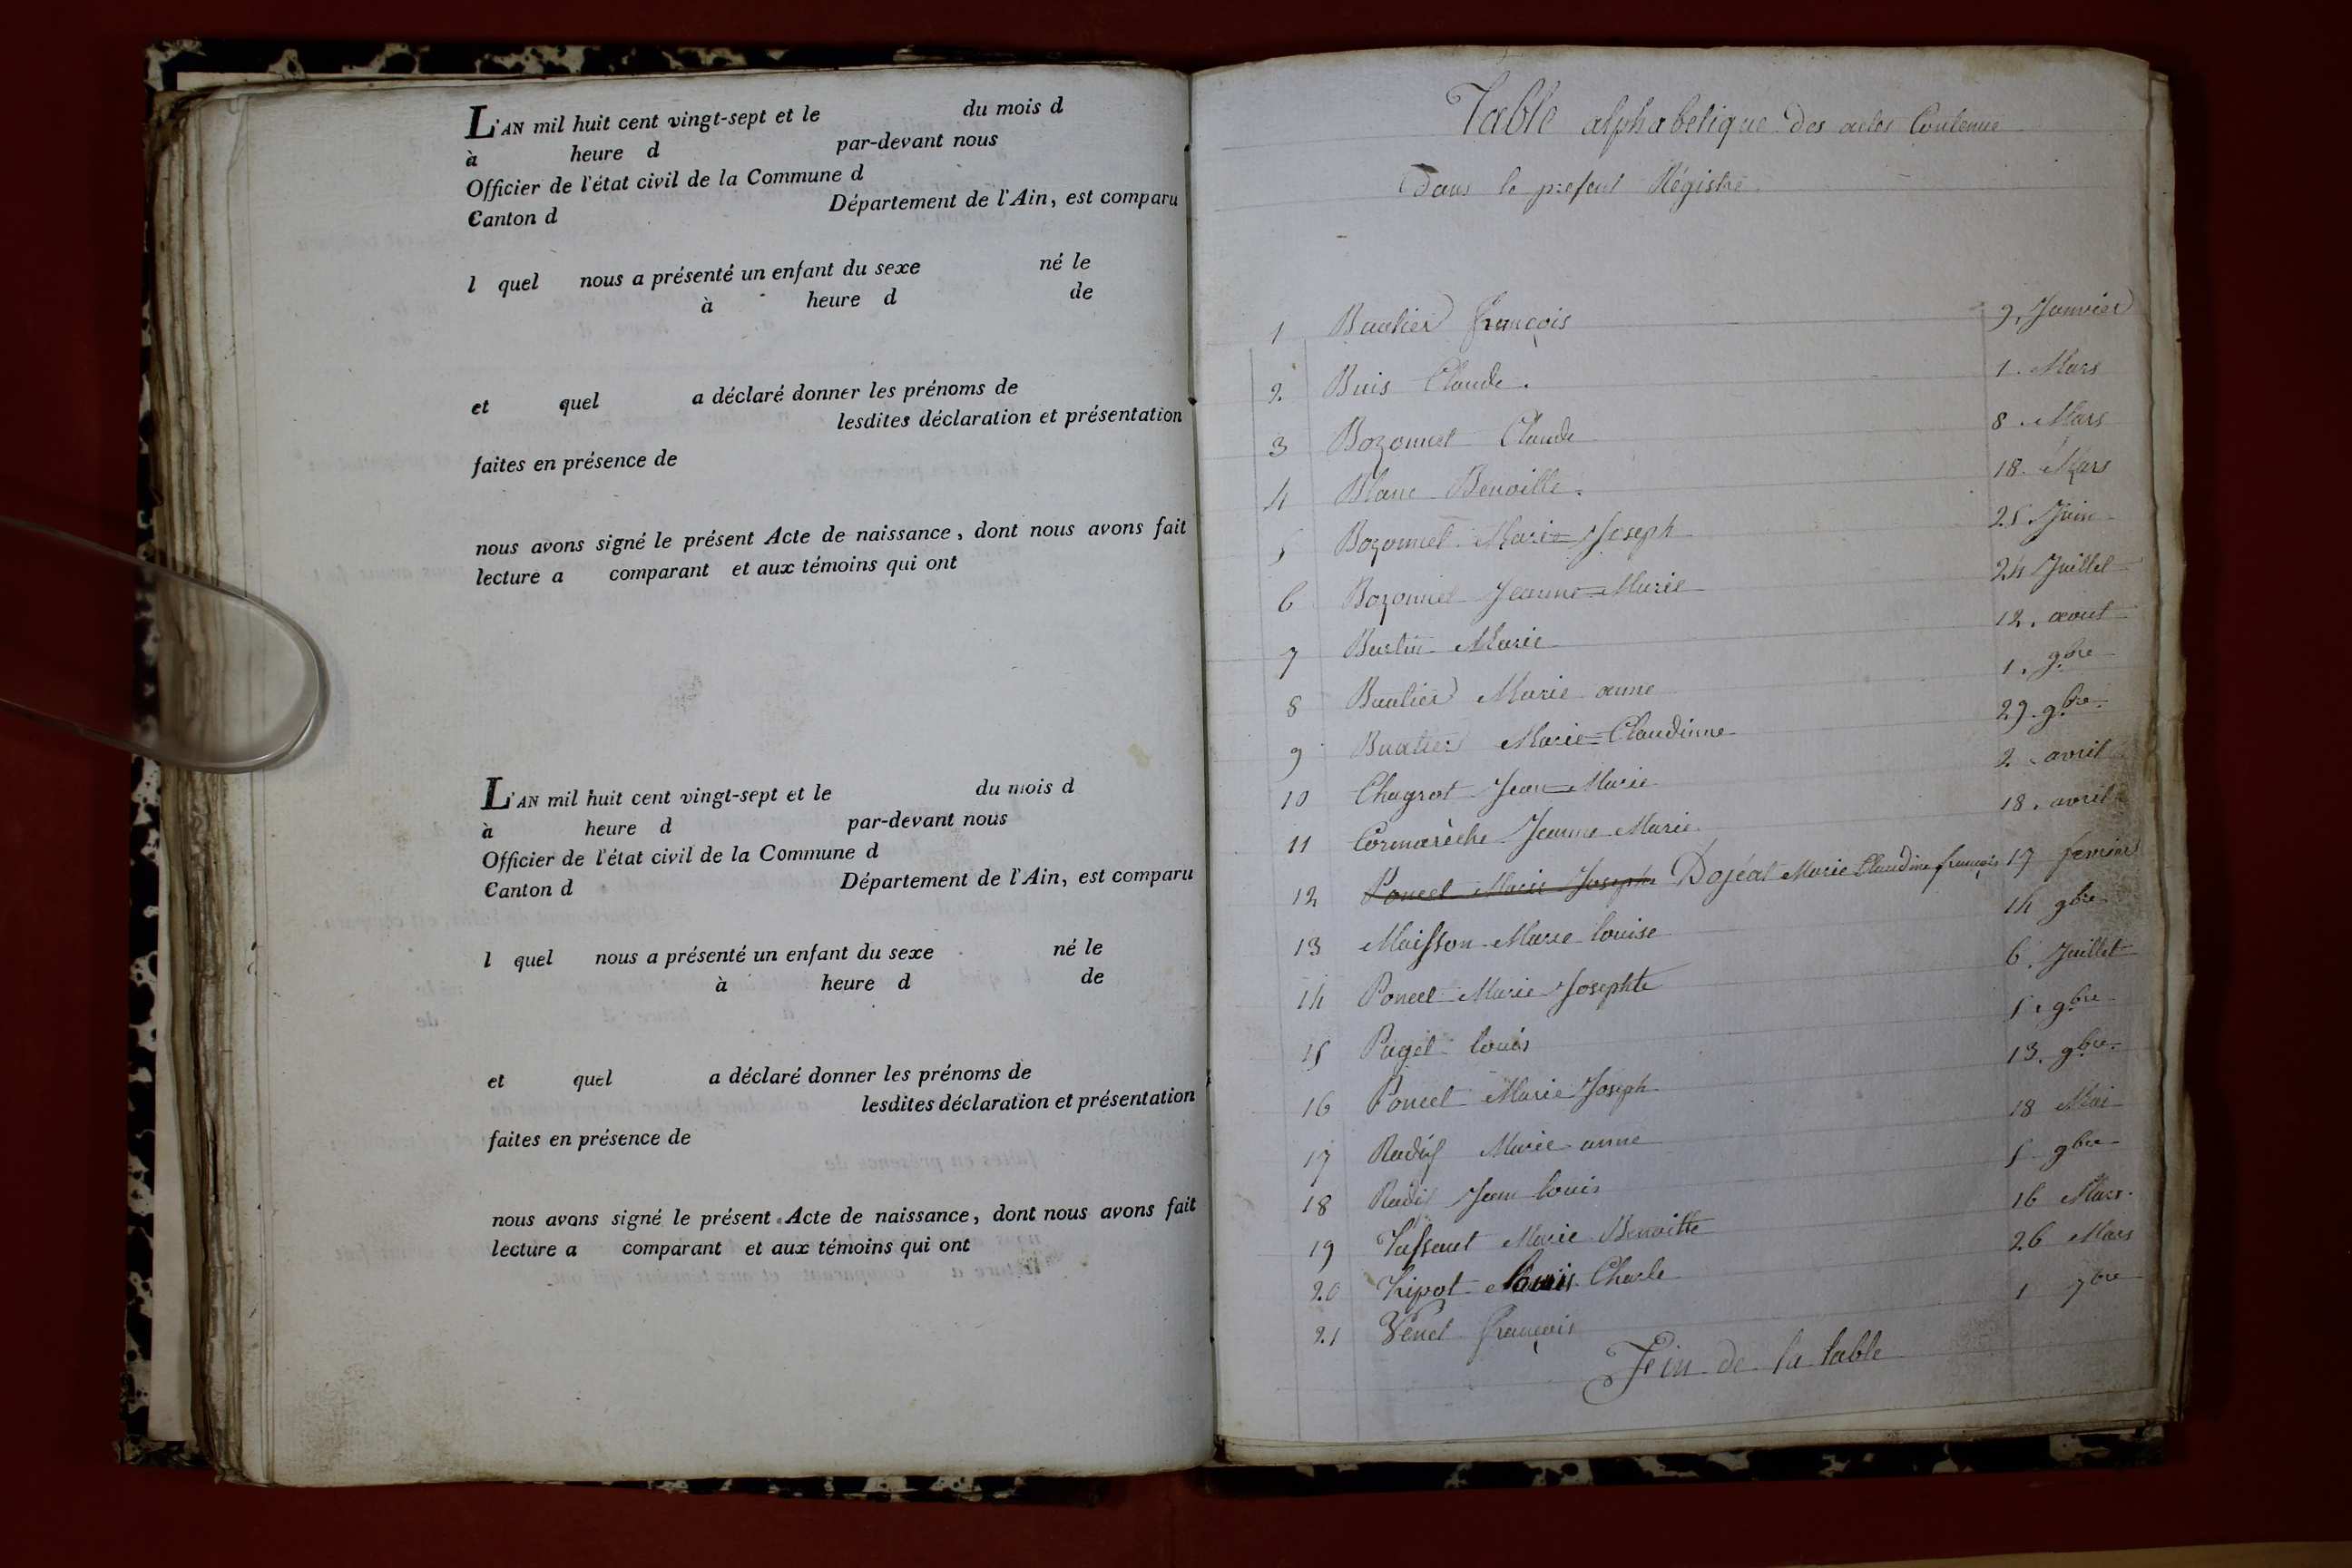 L'AN mil huit cent vingt-sept et le du mois d
à heure d par-devant nous
Officier de l'état civil de la Commune d
Canton d Département de l'Ain, est comparu
l quel nous a présenté un enfant du sexe né le
à heure d de
et quel a déclaré donner les prénoms de
lesdites déclaration et présentation
faites en présence de
nous avons signé le présent Acte de naissance, dont nous avons fait
lecture a comparant et aux témoins qui ont
L'AN mil huit cent vingt-sept et le du mois d
à heure d par-devant nous
Officier de l'état civil de la Commune d
Canton d Département de l'Ain, est comparu
l quel nous a présenté un enfant du sexe né le
à heure d de
et quel a déclaré donner les prénoms de
lesdites déclaration et présentation
faites en présence de
nous avons signé le présent Acte de naissance, dont nous avons fait
lecture a comparant et aux témoins qui ont
Table alphabetique des actes Contenue
Dans le present Régistre
1 François 9. Janvier
2. Buis Claude. 1. Mars
3 Bozonnet Claude 8. Mars
4 Blanc Benoitte. 18. Mars
5 Bozonnet Marie=Joseph 25. Juin
6 Bozonnet Jeanne=Marie 24 Juillet
7 Marie 12. aout
8 Marie anne 1. 9bre
9 Marie=Claudinne 29. 9bre.
10 Chagrot Jean=Marie 2. avril
11 Cormarèche Jeanne Marie. 18. avril
12 Poncet Marie Joseph Dojéat Marie Claudine françois 17 fevrier
13 Maisson Marie louise 14 9bre.
14 Poncet Marie Josephte 6. Juillet
15 Paget louis 5. 9bre
16 Poncet Marie Joseph 13. 9bre.
17 Marie anne 18 Mai
18 Jean louis 5 9bre
19 Marie Benoitte 16 Mars.
20 louis Charle 26 Mars
21 françois 1 7bre
Fin de la table